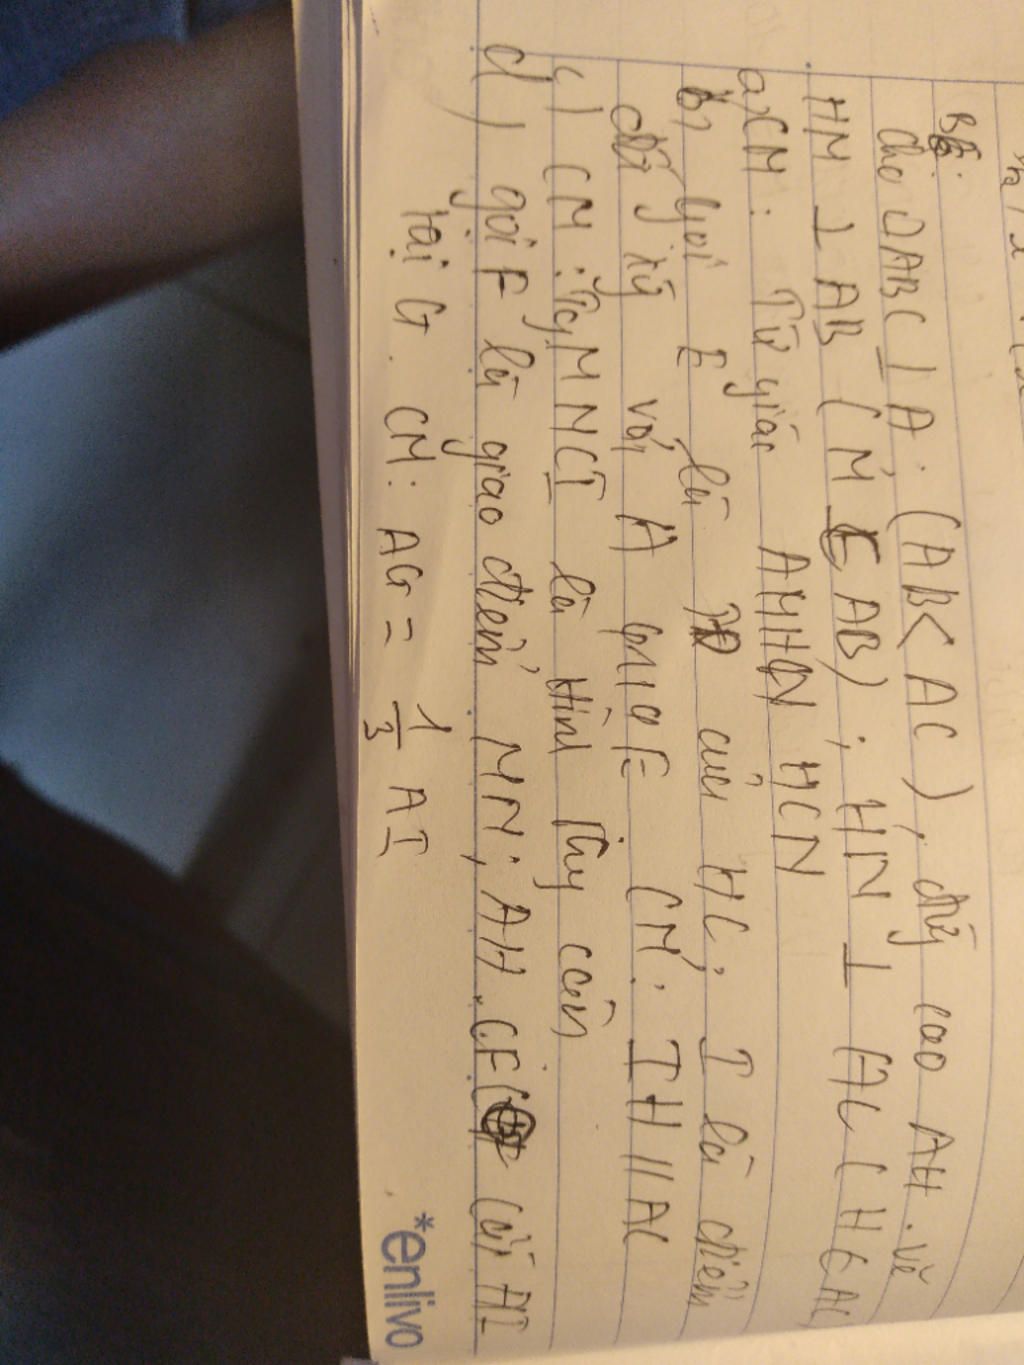 B6:
cho ΔABC ⊥ A. (AB < AC), đường cao AH. vẽ
HM ⊥ AB (M ∈ AB); HN ⊥ AC (N ∈ AC
a, CM: Tứ giác AMHN HCN
b, gọi E là TĐ của HC; I là điểm
đối xứng với A qua E CM: IH // AC
c) CM: Tg MNCI là Hình Thg cân
d) gọi F là giao điểm MN; AH. CF cắt AI
tại G. CM: AG = 1/3 AI
*enlivo